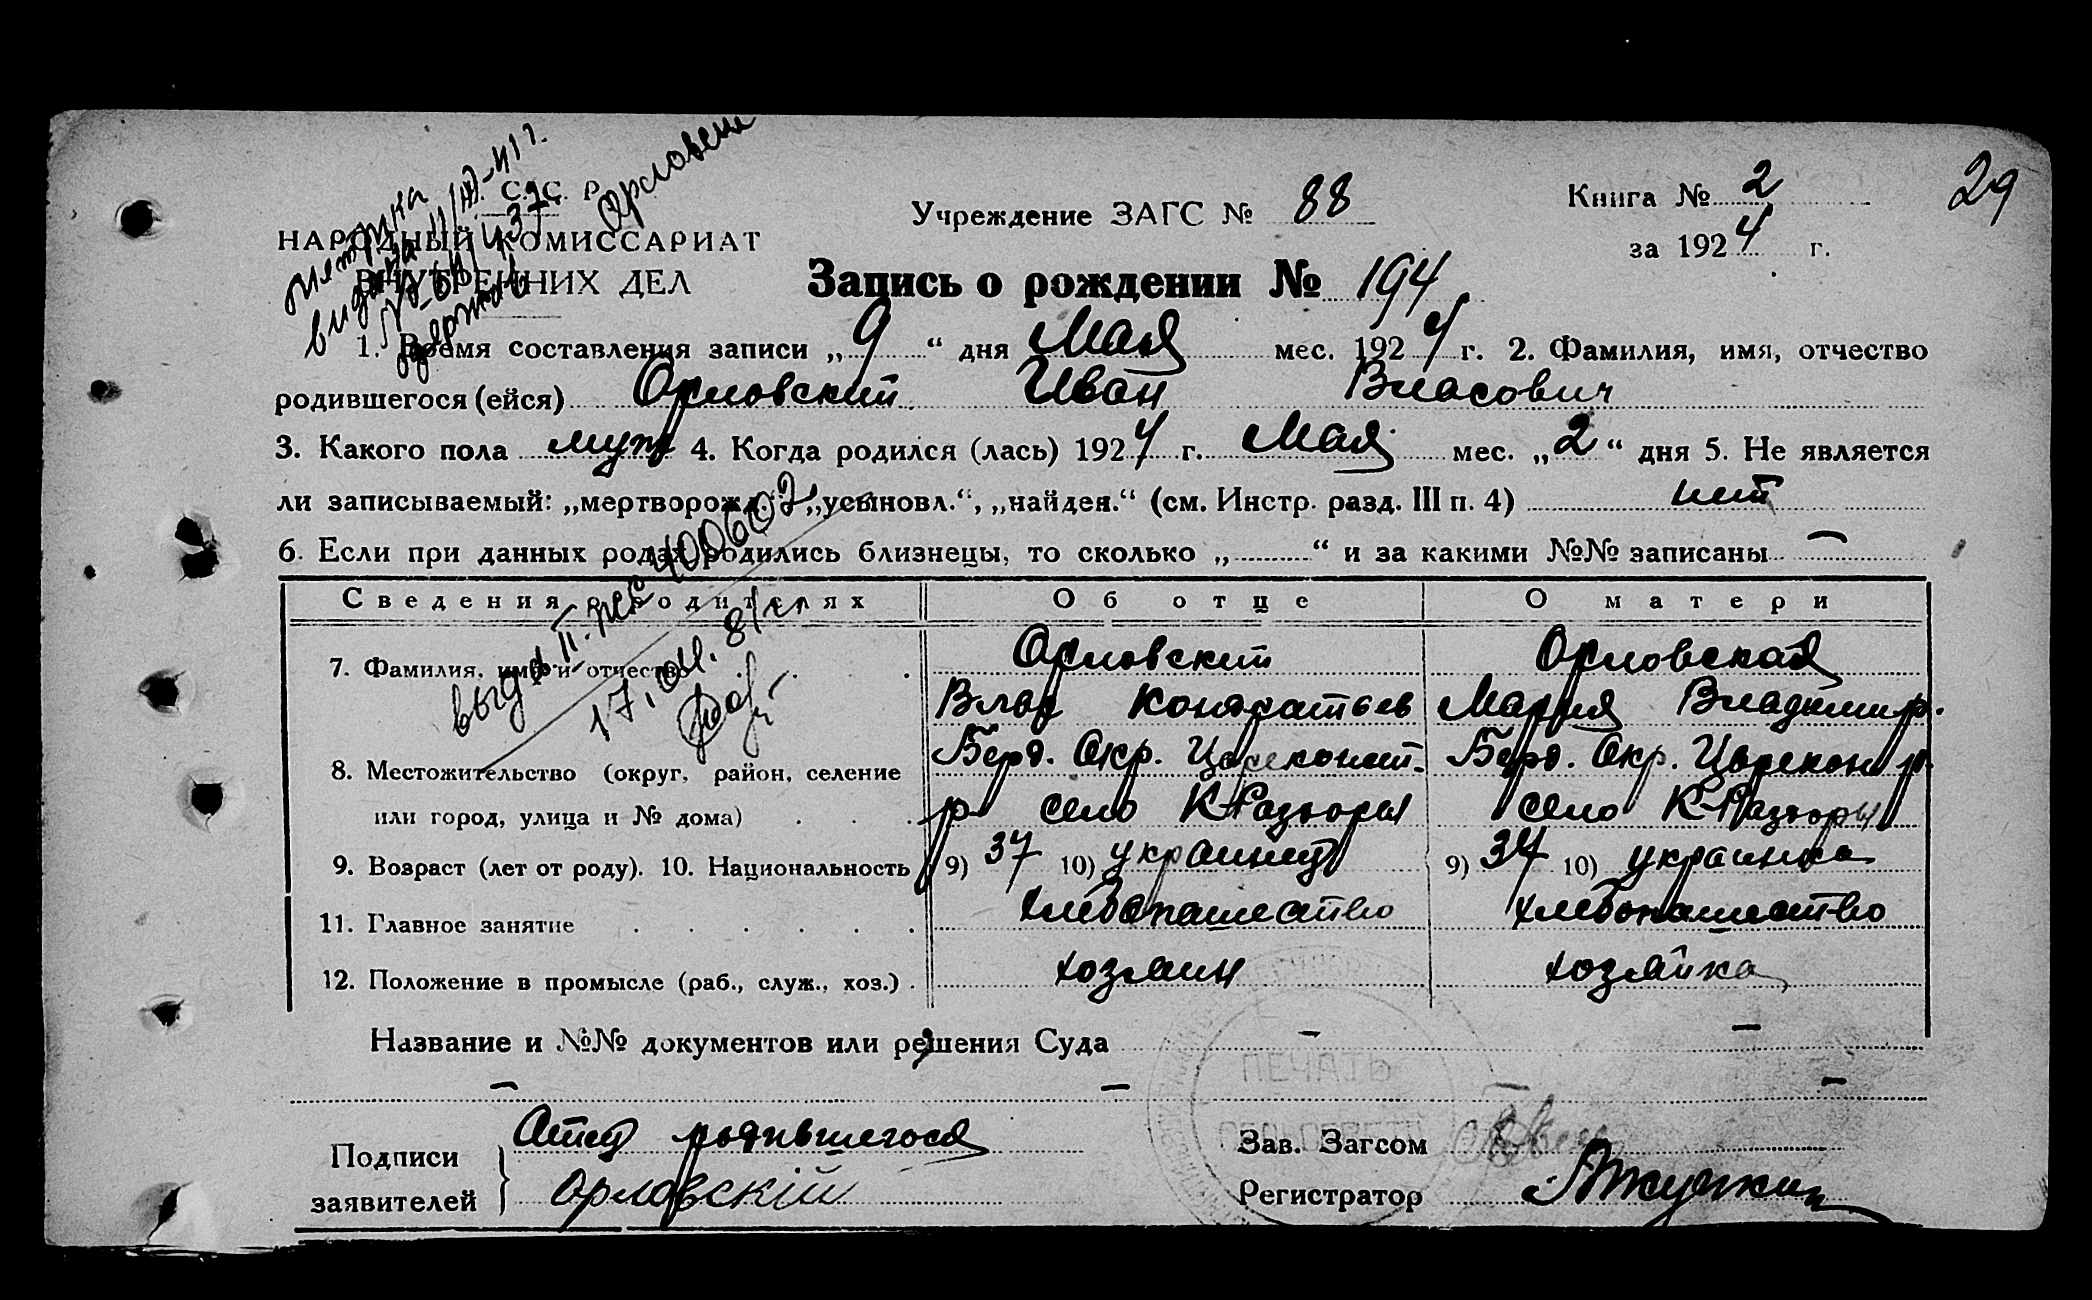 29
С. С. Р.
НАРОДНЫЙ КОМИССАРИАТ
ВНУТРЕННИХ ДЕЛ
Учреждение ЗАГС № 88
Книга № 2
за 1924 г.
Запись о рождении № 194
1. Время составления записи „9“ дня Мая мес. 1924 г. 2. Фамилия, имя, отчество
родившегося (ейся) Орловский Иван Власович
3. Какого пола муж 4. Когда родился (лась) 1924 г. Мая мес. „2“ дня 5. Не является
ли записываемый: „мертворожд.“, „усыновл.“, „найден.“ (см. Инстр. разд. III п. 4) нет
6. Если при данных родах родились близнецы, то сколько „ “ и за какими №№ записаны —
Сведения о родителях Об отце О матери
7. Фамилия, имя и отчество Орловский Орловская
Влас Кондратьев Мария Владимир.
8. Местожительство (округ, район, селение Берд. Окр. Цареконст. Берд. Окр. Царекон р.
или город, улица и № дома) р. село К-Разоры село К-Разоры
9. Возраст (лет от роду). 10. Национальность 9) 37 10) украинец 9) 34 10) украинка
11. Главное занятие хлебопашество хлебопашество
12. Положение в промысле (раб., служ., хоз.) хозяин хозяйка
Название и №№ документов или решения Суда — —
— — —
Подписи
заявителей
Отец родившегося
Орловскій
Зав. Загсом
Регистратор
ПЕЧАТЬ